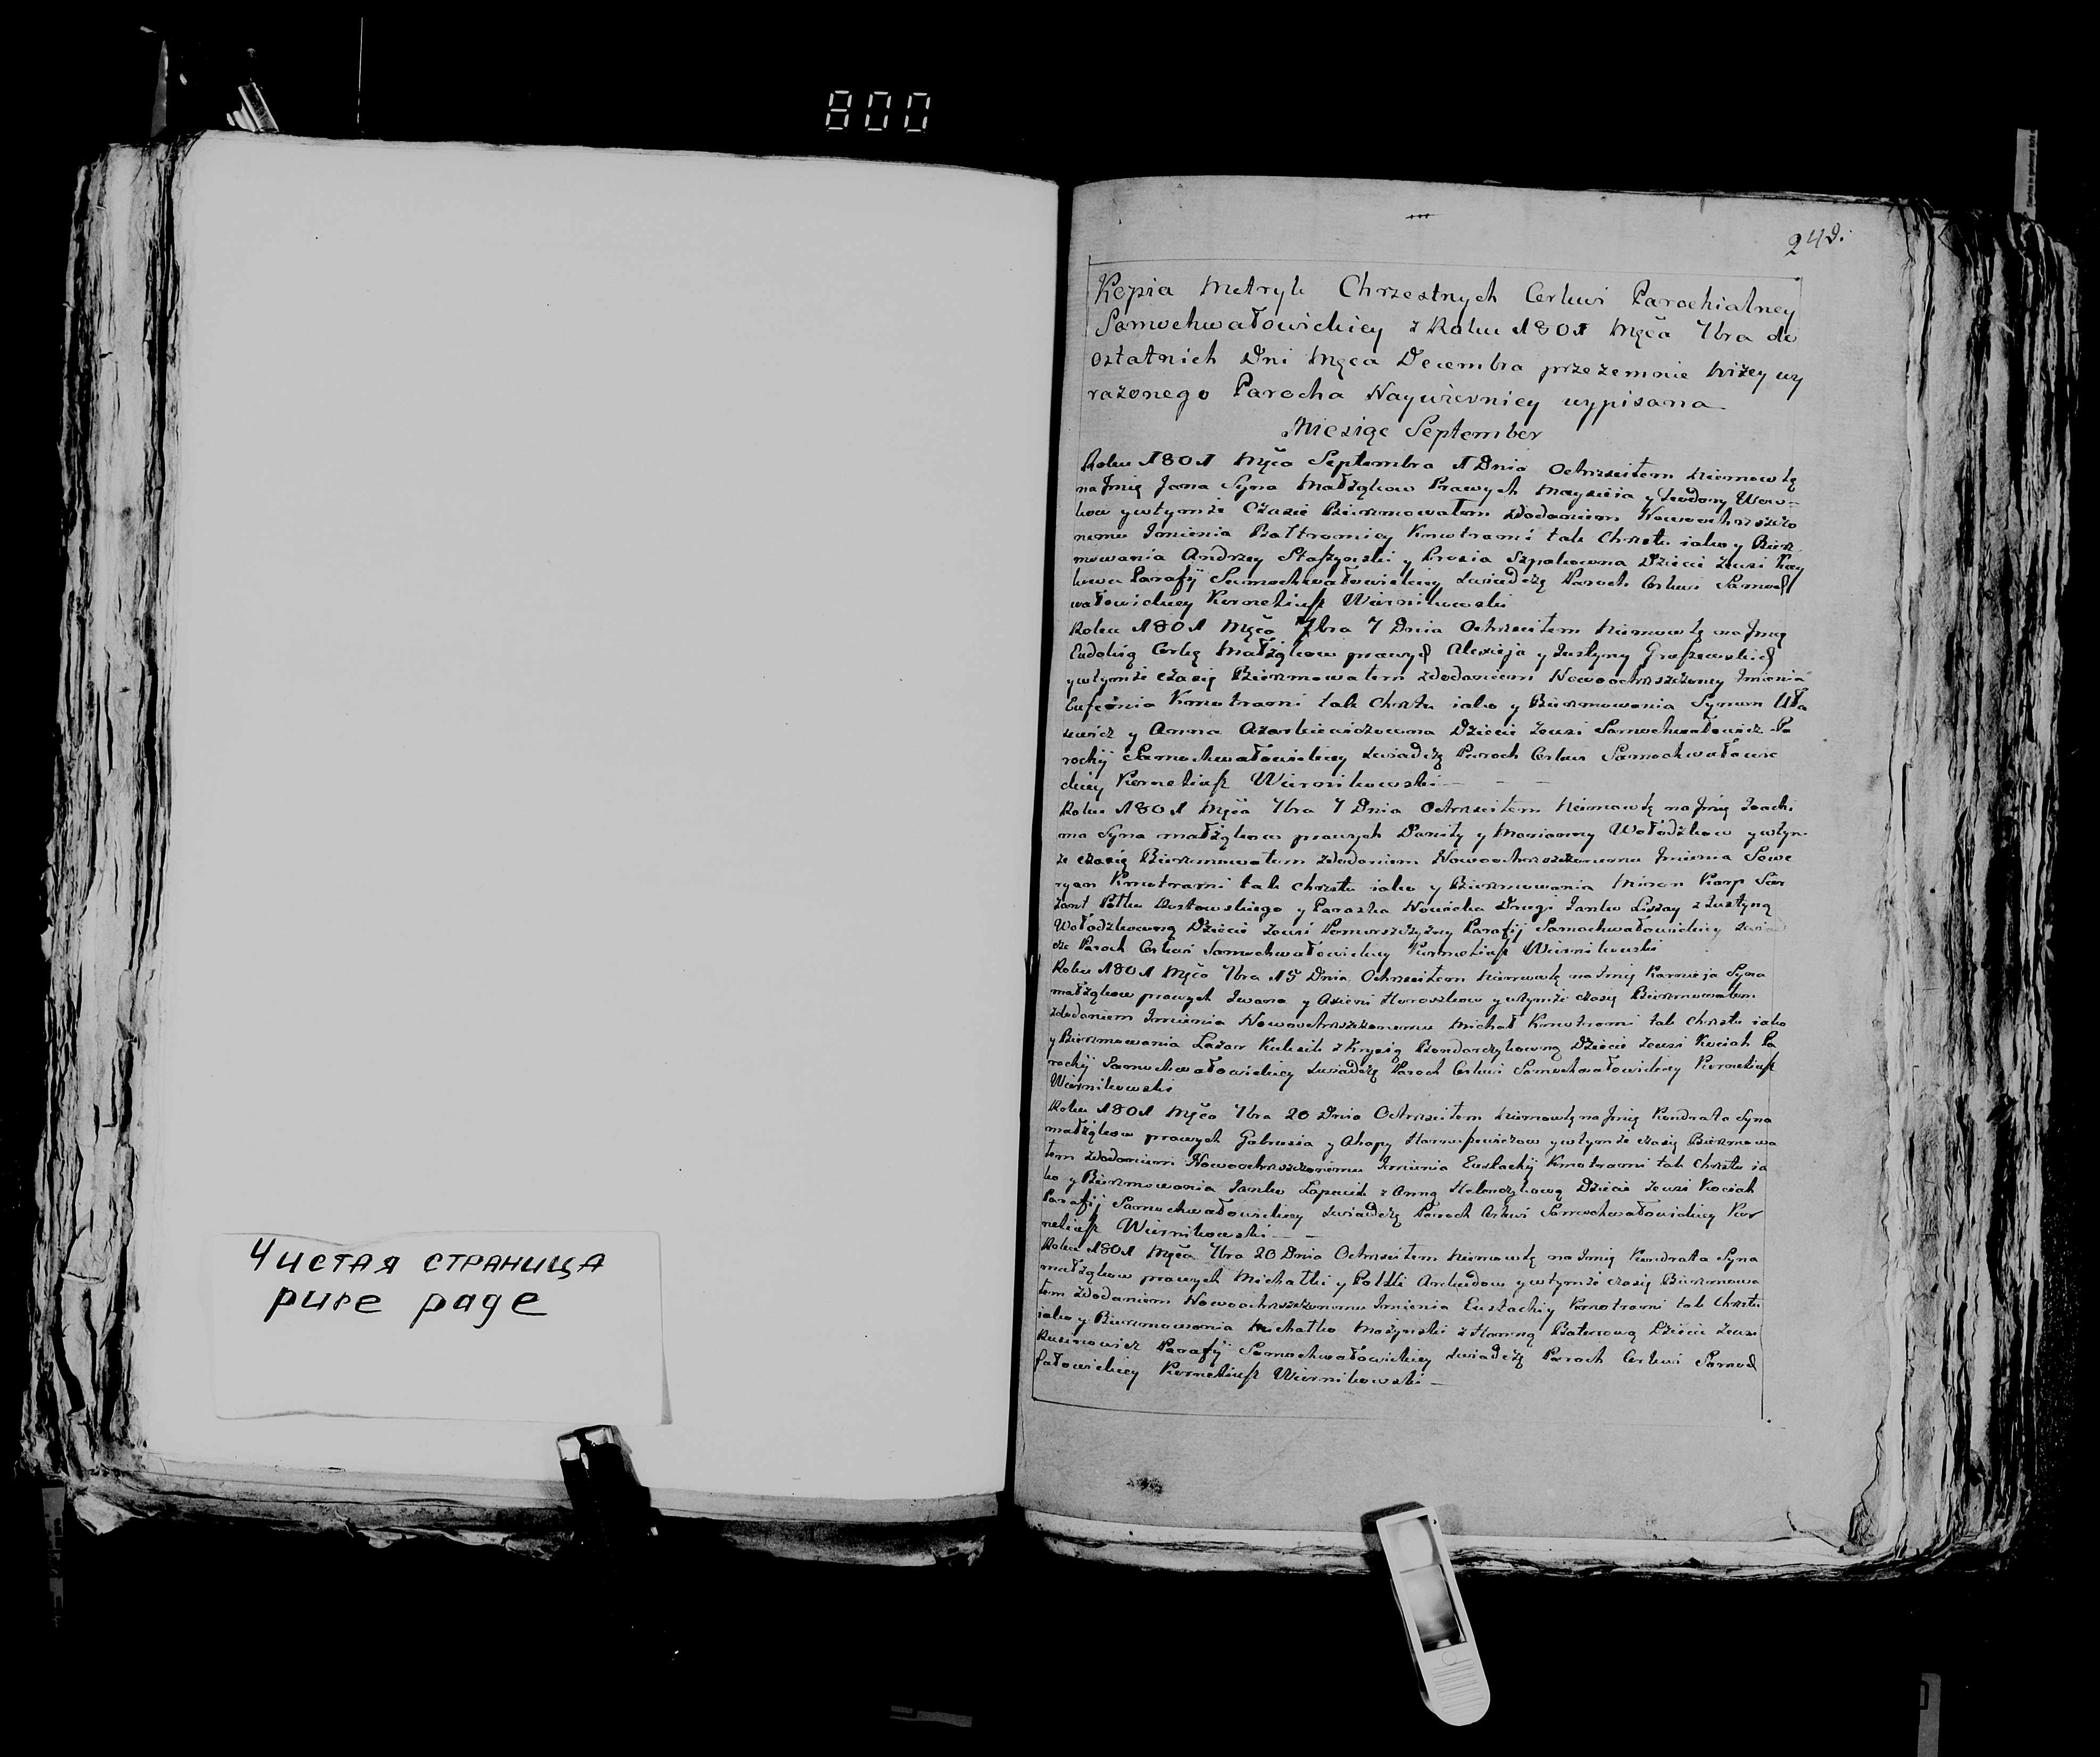 800
Чистая страница
pure page
248.
Kopia Metryk Chrzestnych Cerkwi Parochialney
Samochwałowickiey z Roku 1801 Męca 7bra do
ostatnich Dni Męca Decembra przezemnie niżey wy
rażonego Parocha Naywierniey wypisana
Miesiąc September
Roku 1801 Męca Septembra 1 Dnia Ochrzciłem Niemowlę
na Jmię Jana Syna Małżąkow Prawych Maysieia y Teodory Wow-
kow y wtymże Czasie Bierzmowałem zdodaniem Nowoochrzszczo
nemu Jmienia Bałtromiey Kmotrami tak Chrztu iako y Bierz
mowania Andrzey y Prosia Szpakowna Dziecie zewsi
Parafij Samochwałowickiey zwiadczę Paroch Cerkwi Samoch
wałowickiey Korneliusz Wiernikowski
Roku 1801 Męca 7bra 7 Dnia Ochrzciłem Niemowlę na Jmię
Eudokię Corkę Małżąkow prawych Alexieja y Justyny
y wtymże czasię Bierzmowałem zdodaniem Nowoochrzszczoney Jmienia
Eufemia Kmotrami tak Chrztu iako y Bierzmowania Symon Uła
sewicz y Anna Dziecie zewsi Samochwałowicz Pa
rochij Samochwałowickiey zwiadczę Paroch Cerkwi Samochwałowic
kiey Korneliusz Wiernikowski
Roku 1801 Męca 7bra 7 Dnia Ochrzciłem Niemowlę na Jmię Joachi
ma Syna małżąkow prawych Daniły y Marianny Wołodzkow y wtym
że czasię Bierzmowałem zdodaniem Nowoochrzszczonemu Jmienia Sowe
ryan Kmotrami tak chrztu iako y Bierzmowania Miron Karp Ser
żant Połku y Paraska Nowicka Drugi Janko z Justyną
Wołodzkowną Dziecie zewsi Parafij Samochwałowickiey zwiad
cze Paroch Cerkwi Samochwałowickiey Korneliusz Wiernikowski
Roku 1801 Męca 7bra 15 Dnia Ochrzciłem Niemowlę na Jmię Karnieja Syna
małżąkow prawych Jwana y Axieni Horoszkow y wtymże czasię Bierzmowałem
zdodaniem Jmienia Nowoochrzszczonemu Michał Kmotrami tak Chrztu iako
y Bierzmowania Łazar Kulesik z Krysią Bondarczykowną Dziecie zewsi Kociah Pa
rochij Samochwałowickiey zwiadczę Paroch Cerkwi Samochwałowickiey Korneliusz
Wiernikowski
Roku 1801 Męca 7bra 20 Dnia Ochrzciłem Niemowlę na Jmię Kondrata Syna
małżąkow prawych Gabrusia y Ahapy y wtymże czasię Bierzmowa
łem zdodaniem Nowoochrzszczonemu Jmienia Eustachij Kmotrami tak Chrztu ia
ko y Bierzmowania Janko Łapacik z Anną Dziecie zewsi Kociah
Parafij Samochwałowickiey zwiadczę Paroch Cerkwi Samochwałowickiey Kor
neliusz Wiernikowski
Roku 1801 Męca 7bra 20 Dnia Ochrzciłem Niemowlę na Jmię Kondrata Syna
małżąkow prawych Michałki y y wtymże czasię Bierzmowa
łem zdodaniem Nowoochrzszczonemu Jmienia Eustachiy Kmotrami tak Chrztu
iako y Bierzmowania Michałko z Hanną Dziecie zewsi
Parafij Samochwałowickiey zwiadczę Paroch Cerkwi Samoch
fałowickiey Korneliusz Wiernikowski